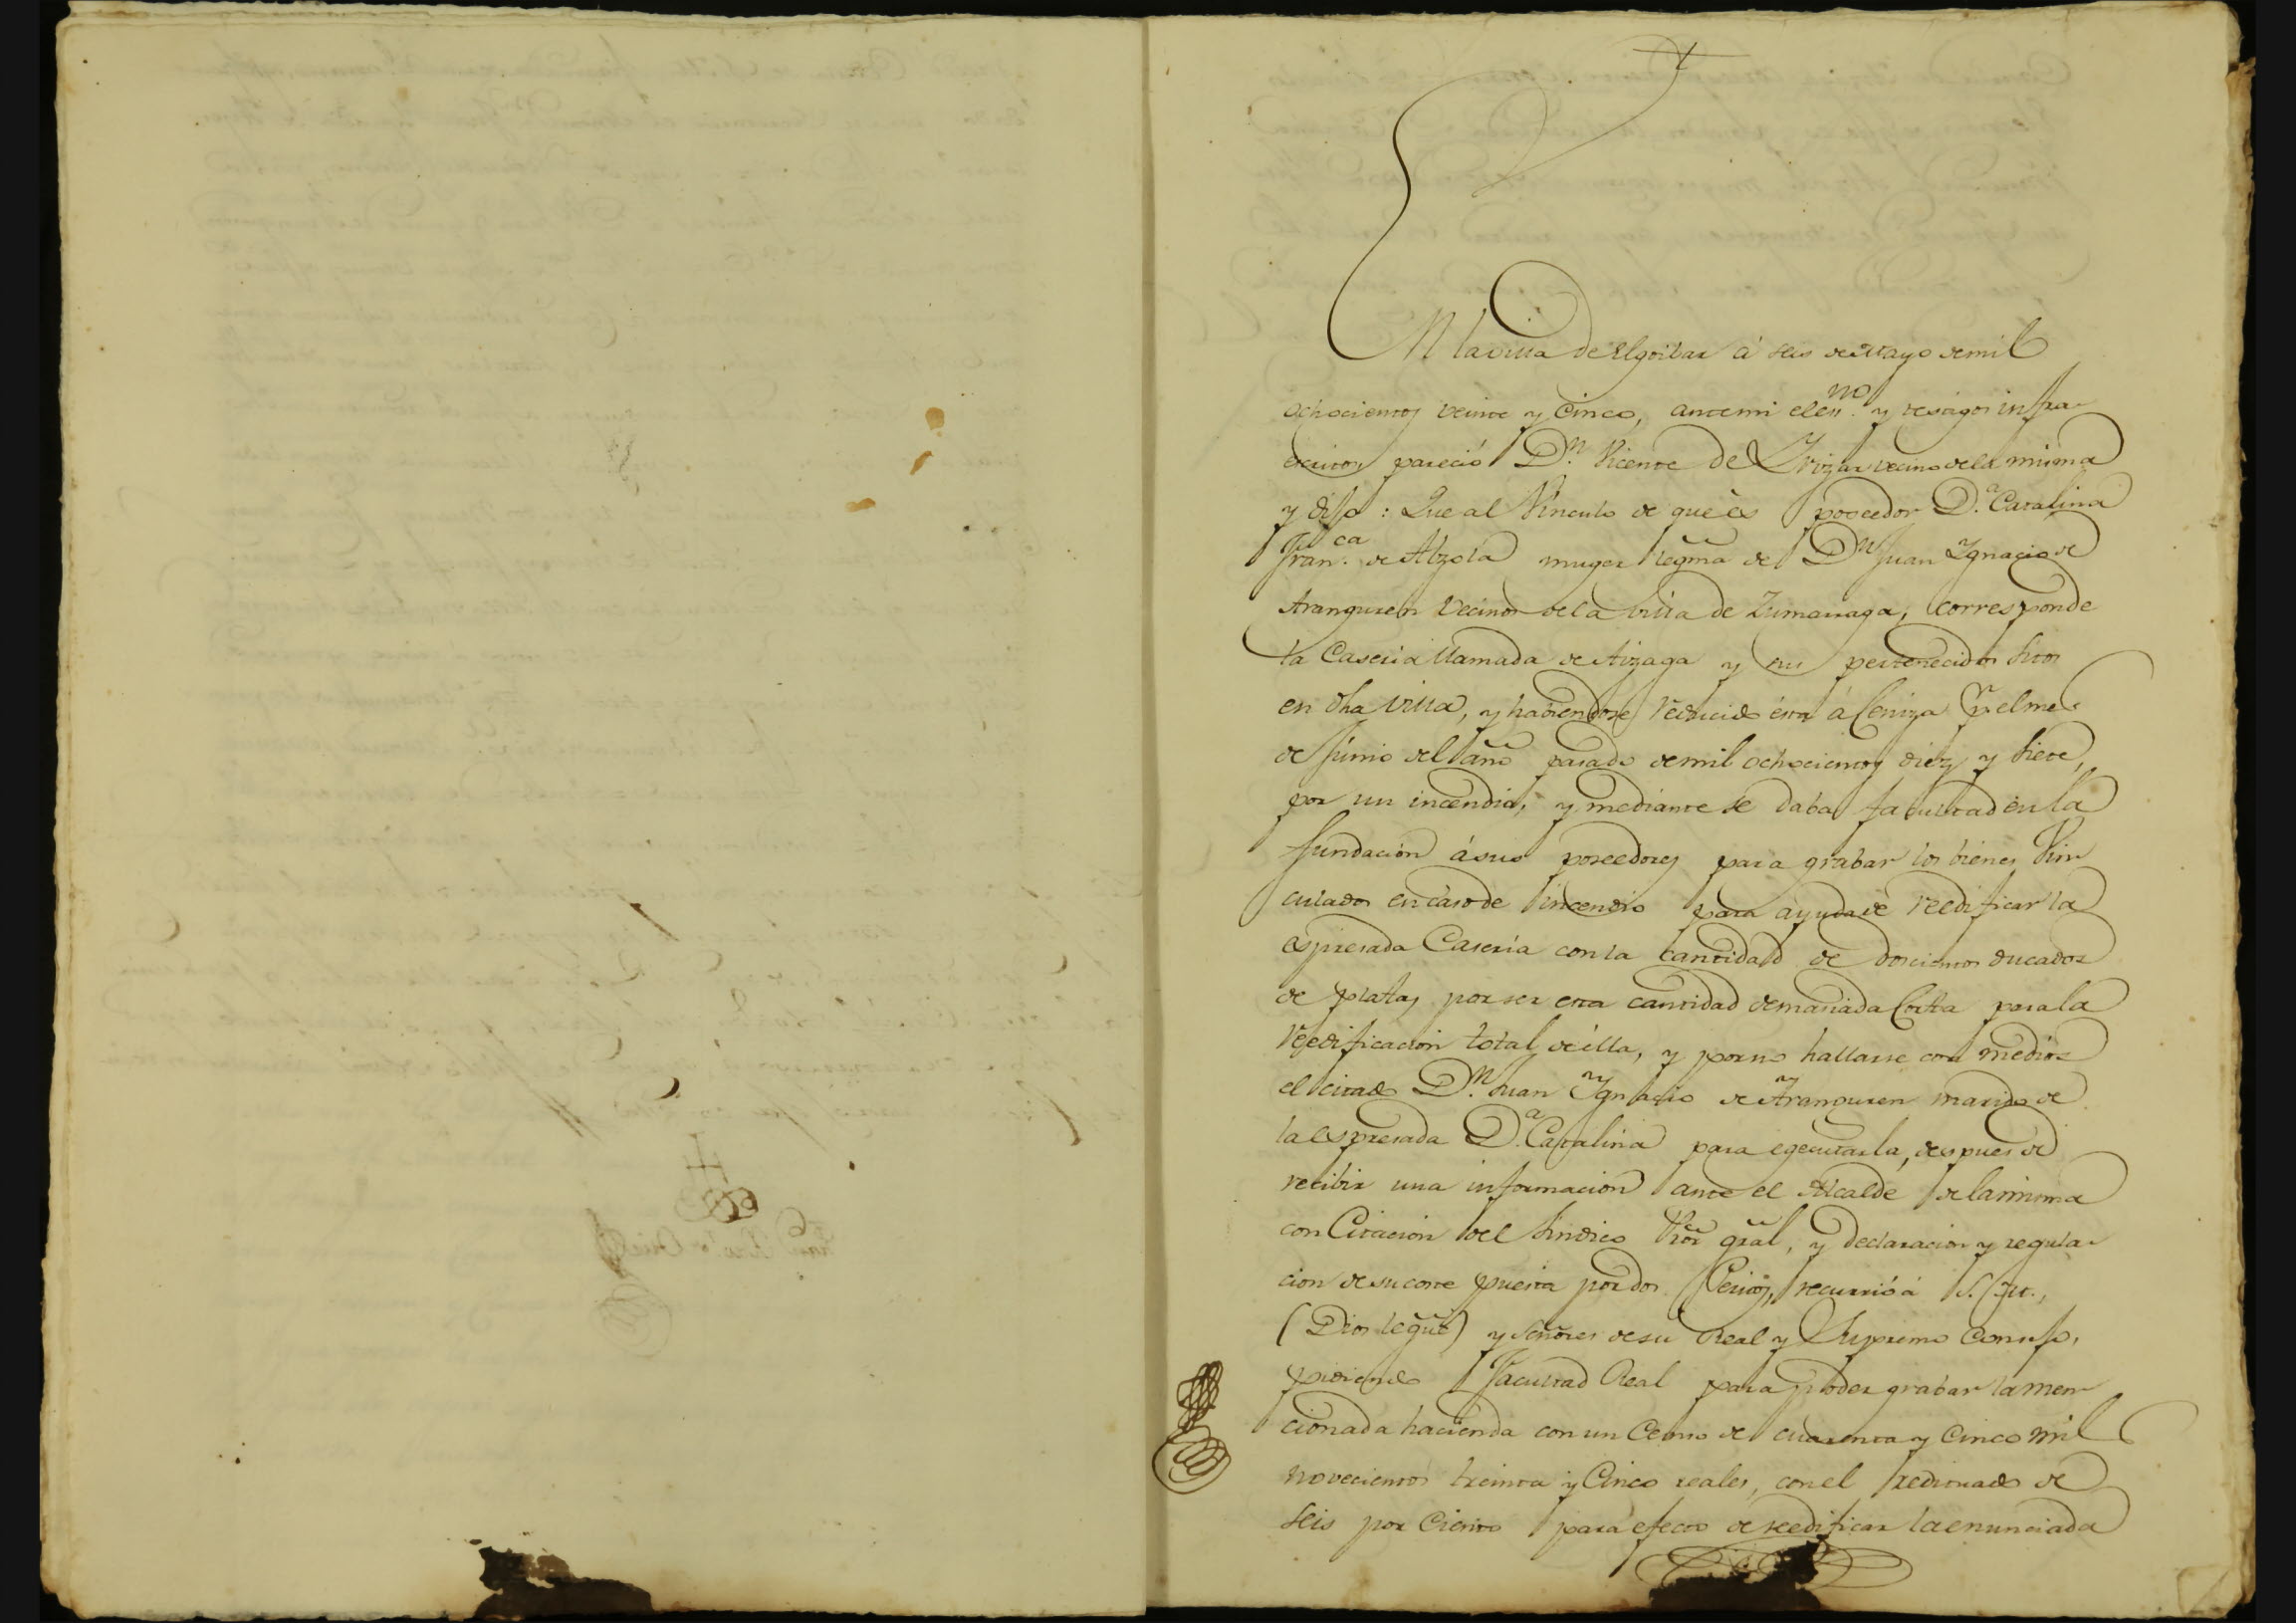 En la villa de Elgoibar á seis de Mayo de mil
ochocientos veinte y Cinco, ante mi el essno. y testigos infra-
escritos pareció Dn. Vicente de Yrizar vecino de la misma
y dijo: Que al Vinculo de que es poseedor Da. Catalina
Franca. de Alzola muger legma de Dn Juan Ygnacio de
Aranguren Vecinos de la villa de Zumarraga, corresponde
la Caseria llamada de Aizaga y sus pertenecidos sitos
en dha villa, y habiendose reducido ésta á Ceniza pr el mes
de Junio del año pasado de mil ochocientos diez y siete,
por un incendio, y mediante se daba facultad en la
fundación á sus poseedores para grabar los bienes Vin
culados en caso de incendio para ayuda de reedificar la
espresada Casería con la cantidad de doscientos ducados
de plata, por ser esta cantidad demasiada Corta para la
reedificacion total de élla, y por no hallarse con medios
el citado Dn. Juan Ygnacio de Aranguren marido de
la espresada Da. Catalina para egecutarla, despues de
recibir una informacion ante el Alcalde de la misma
con Citacion del Sindico Pror gral, y declaracion y regula-
cion de su coste puesta por dos Peritos, recurrió á S. M.,
(Dios le gue) y Señores de su Real y Supremo Consejo,
pidiendo Facultad Real para poder grabar la men-
cionada hacienda con un Censo de cuarenta y Cinco mil
novecientos treinta y Cinco reales, con el redituado de
seis por Ciento para efecto de reedificar la enunciada